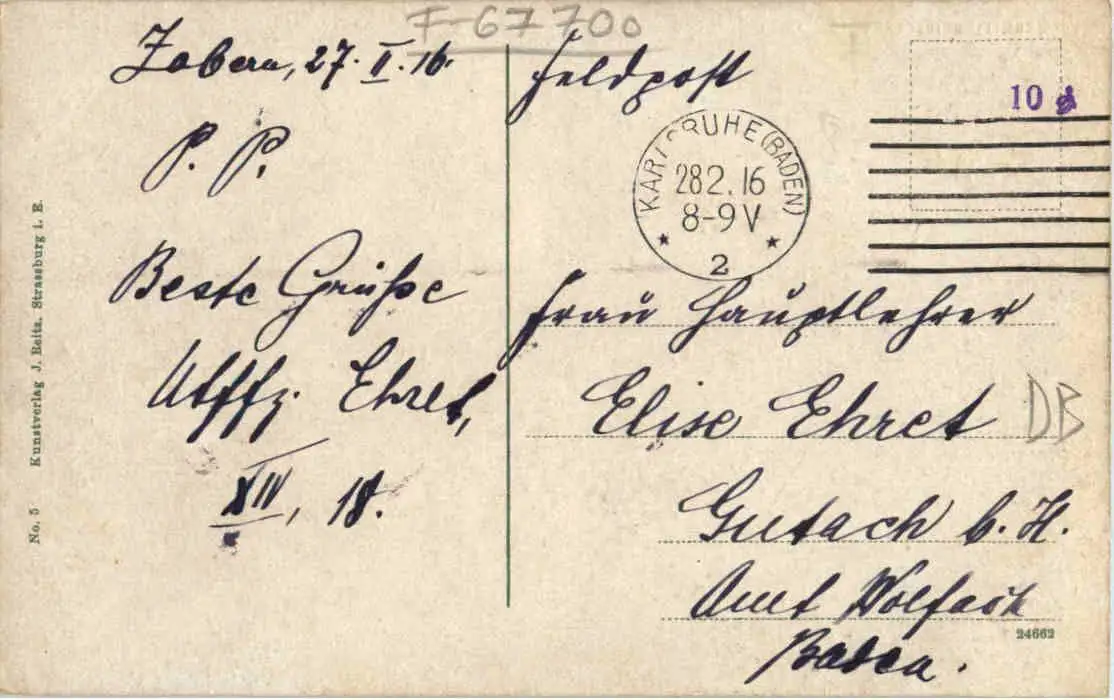 F-67700
Zabern, 27. II. 16.
P. P.
Beste Grüße
Utffz. Ehret,
XIV, 18.
Feldpost
10
KARLSRUHE (BADEN)
28 2. 16
8-9 V
2
Frau Hauptlehrer
Elise Ehret
DB
Gutach b. H.
Amt Wolfach
Baden.
24662
No. 5 Kunstverlag J. Reitz, Strassburg i. E.